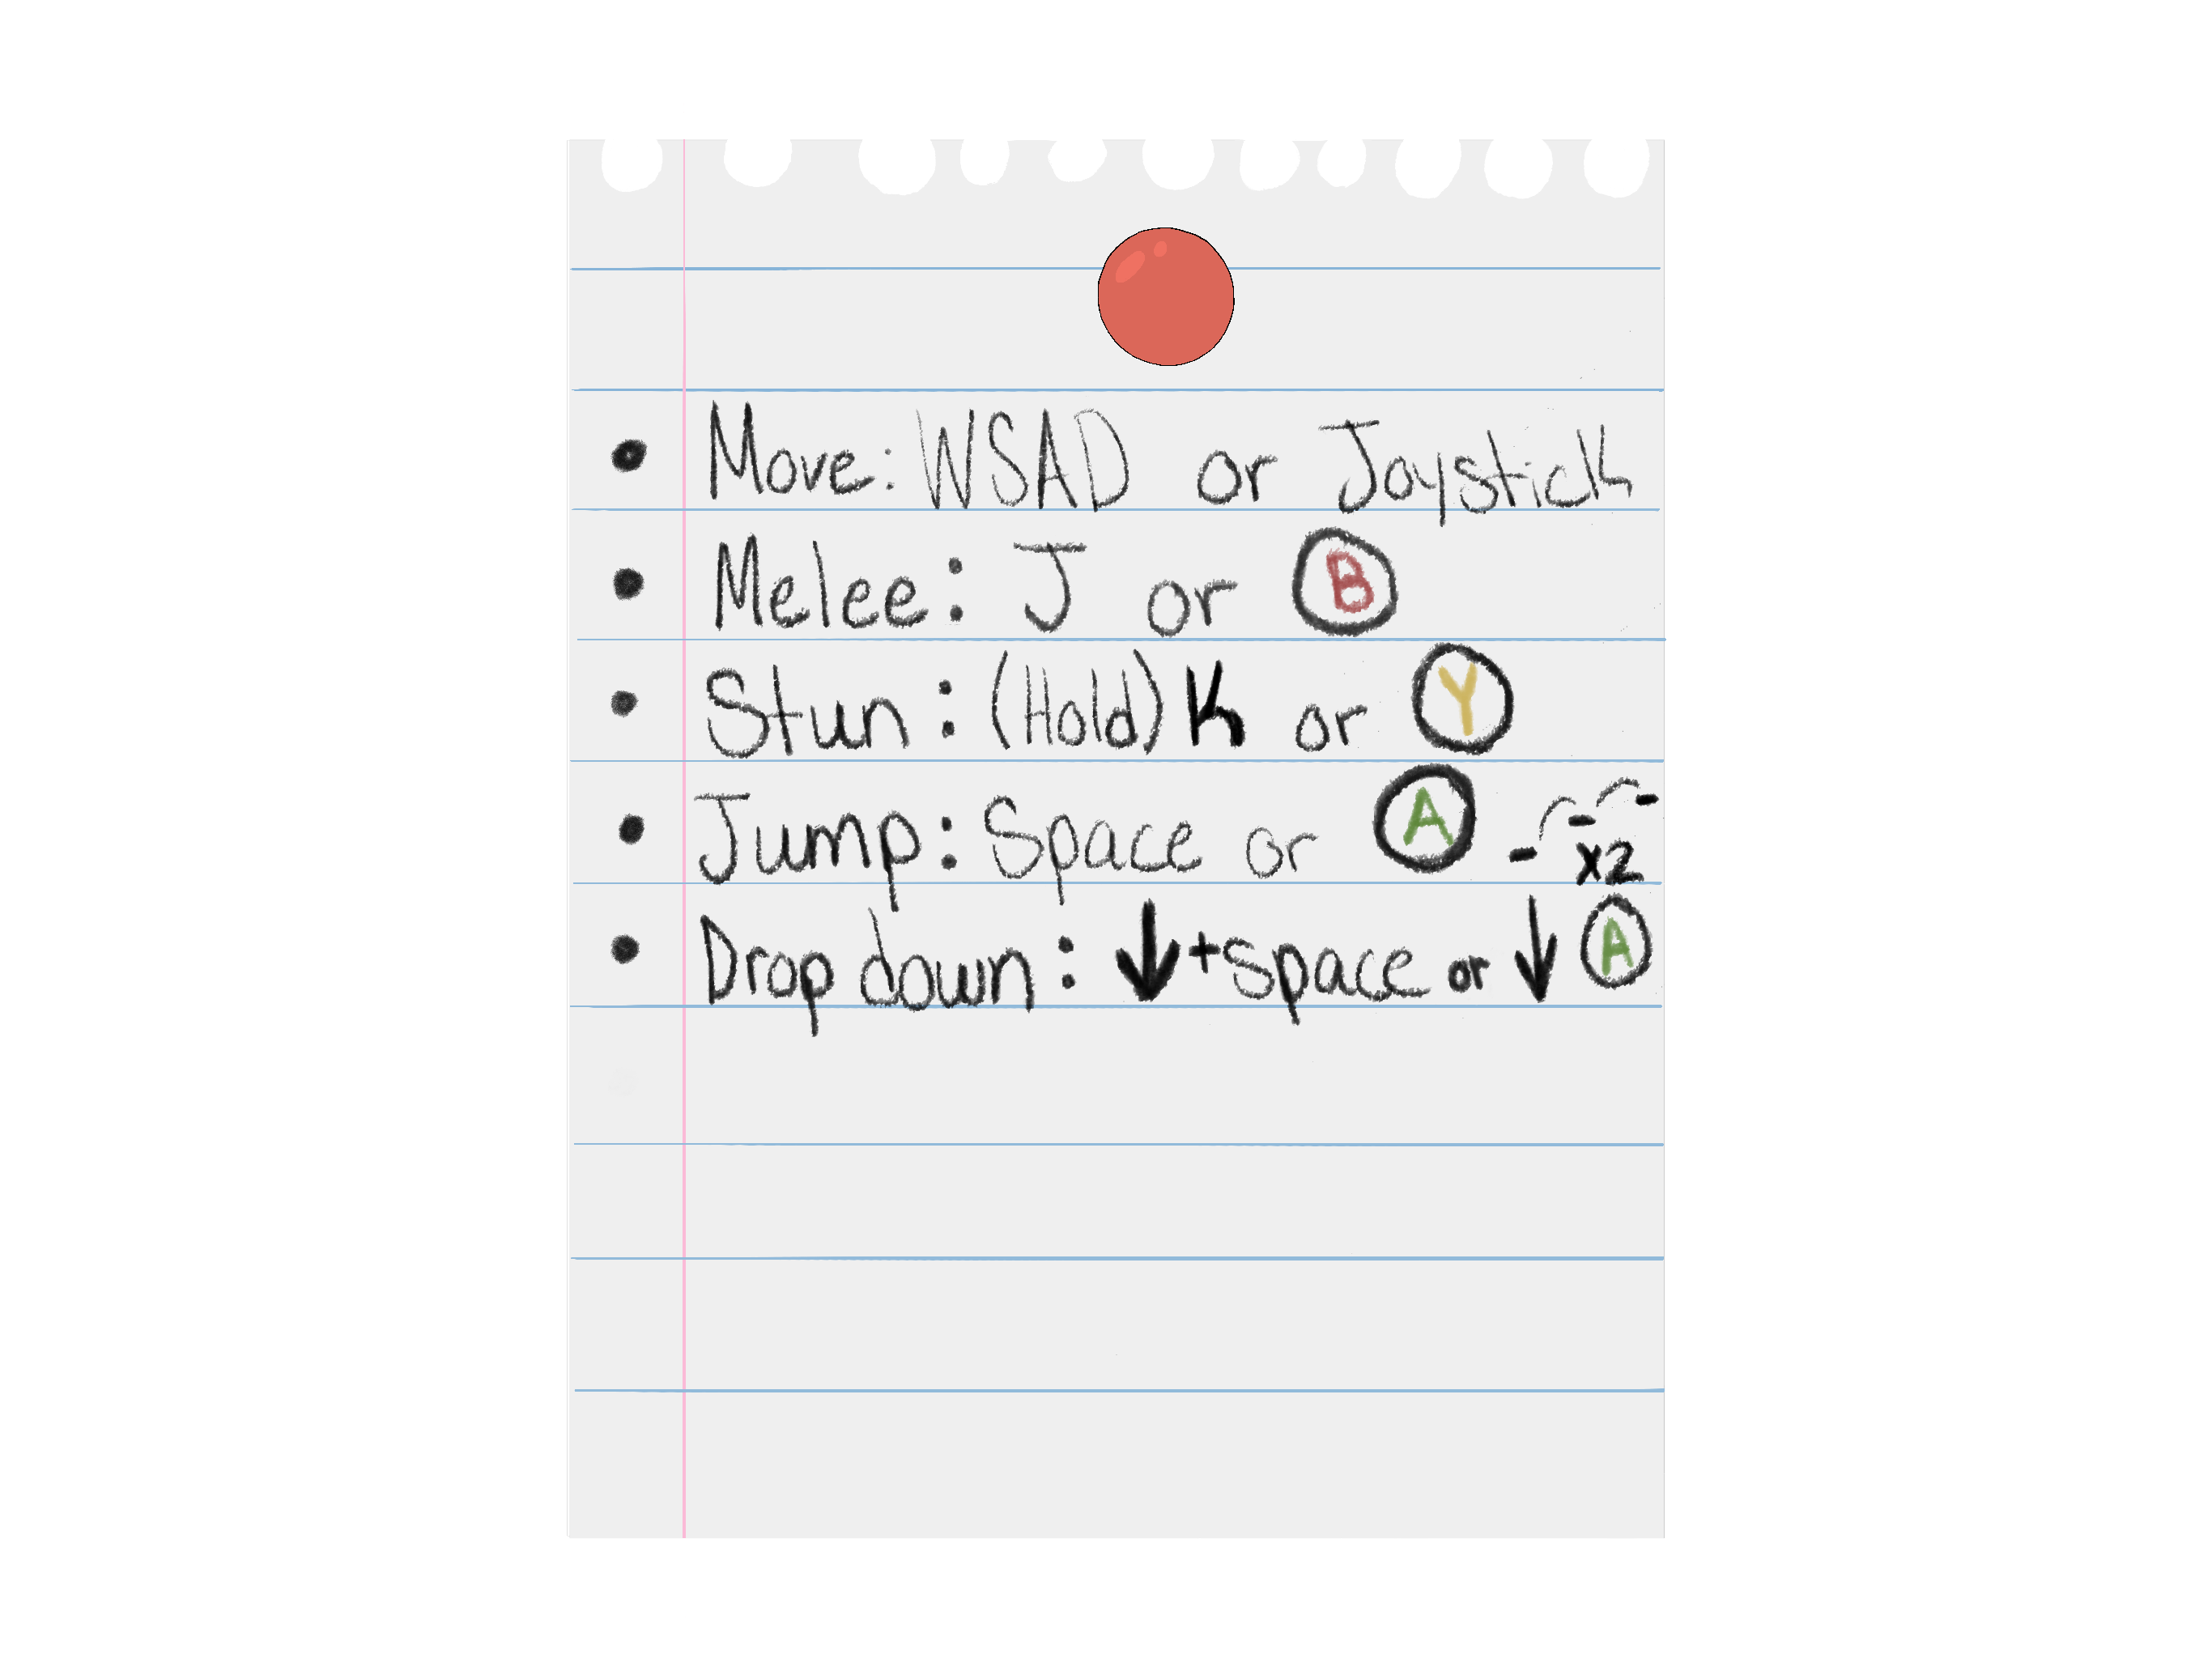 • Move: WSAD or Joystick
• Melee: J or B
• Stun: (Hold) K or Y
• Jump: Space or A x2
• Drop down: ↓+space or ↓ A